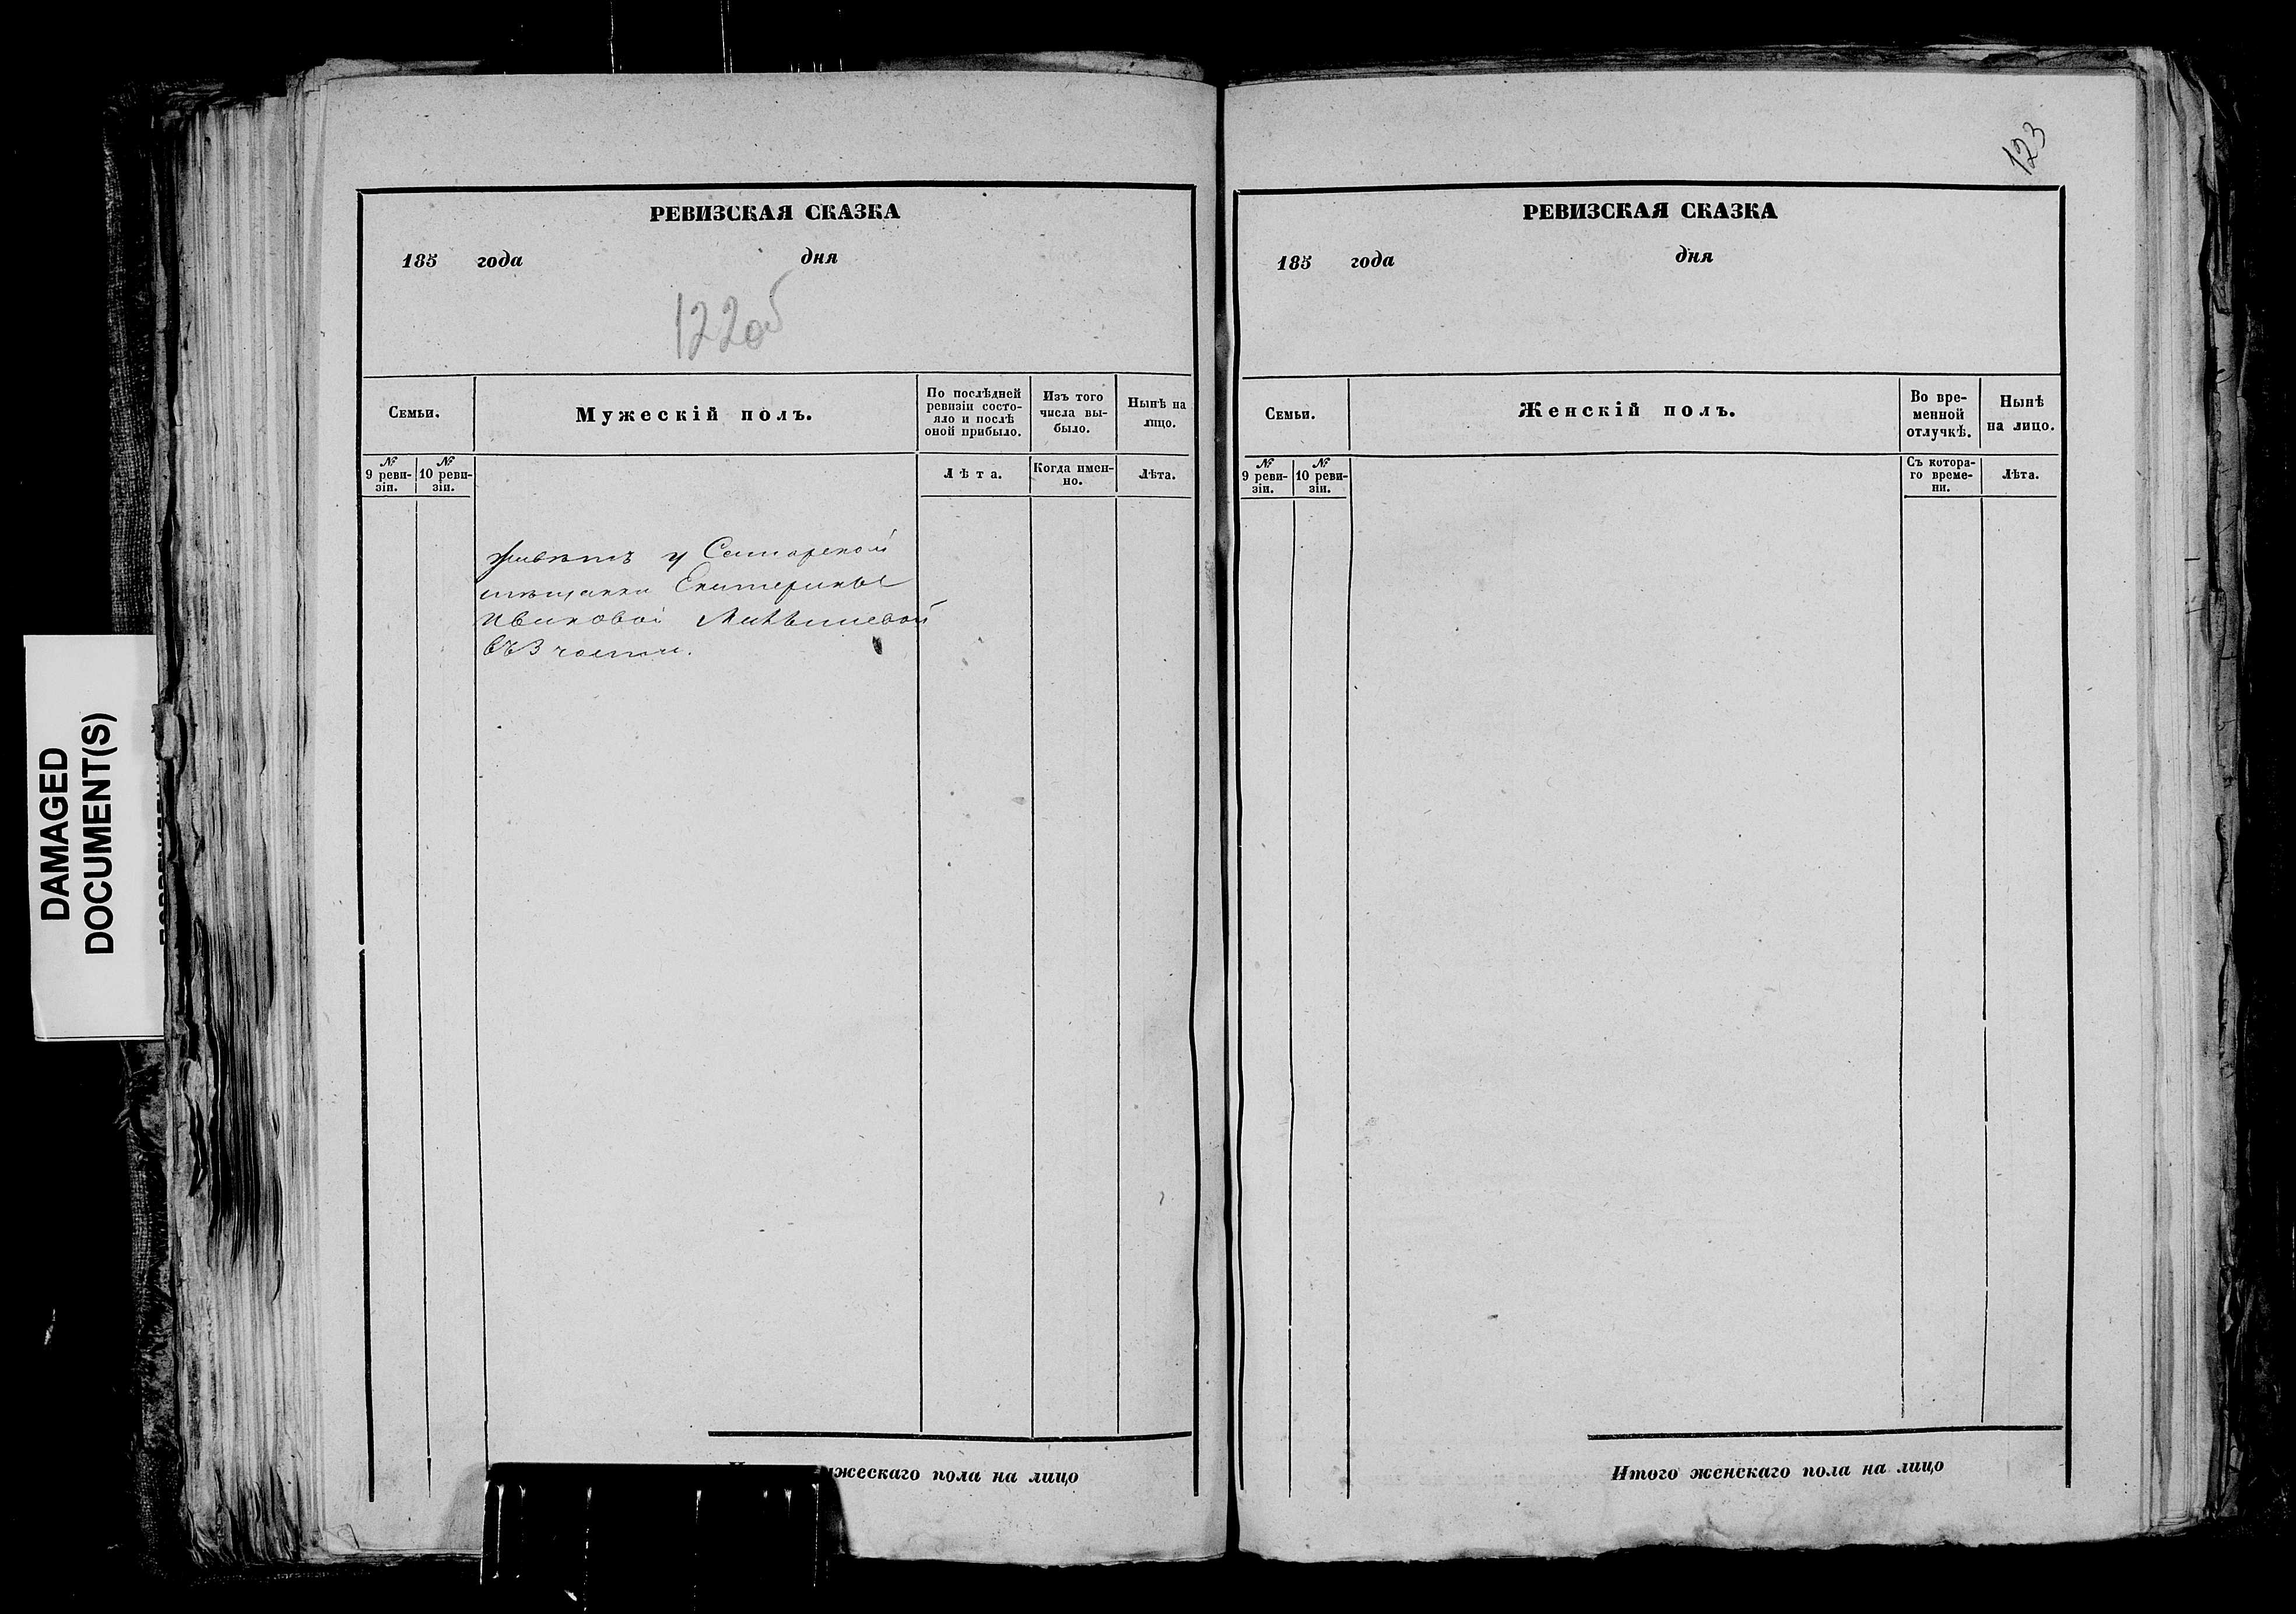 РЕВИЗСКАЯ СКАЗКА
185 года дня
122об
Семьи.
Мужескій полъ.
По послѣдней ревизіи состо-
яло и послѣ
оной прибыло.
Изъ того
числа вы-
было.
Нынѣ на
лицо.
№
9 реви-
зіи.
№
10 реви-
зіи.
Лѣта.
Когда имен-
но.
Лѣта.
Живетъ у Самарской
мѣщанки Екатерины
Ивановой
въ 3 части.
жескаго пола на лицо
123
РЕВИЗСКАЯ СКАЗКА
185 года дня
Семьи.
Женскій полъ.
Во вре-
менной
отлучкѣ.
Нынѣ
на лицо.
№
9 реви-
зіи.
№
10 реви-
зіи.
Съ котора-
го време-
ни.
Лѣта.
Итого женскаго пола на лицо
DAMAGED
DOCUMENT(S)